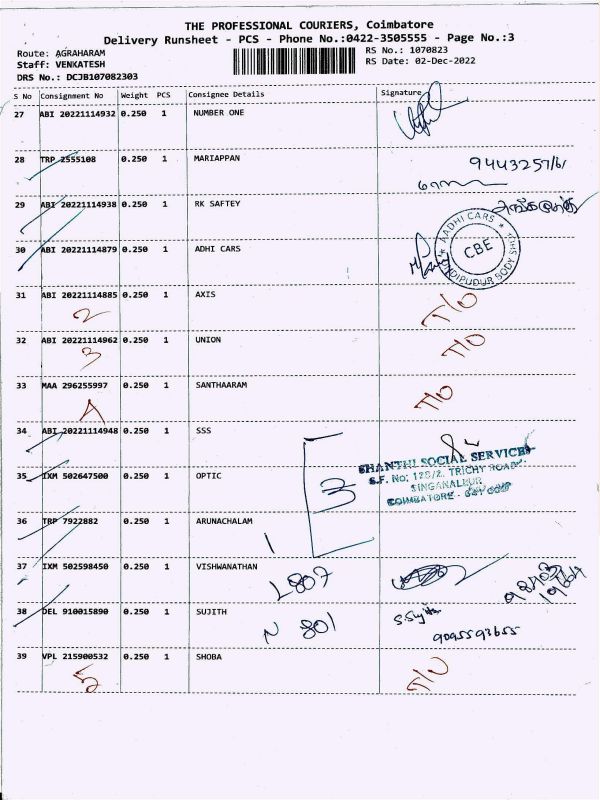 THE PROFESSIONAL COURIERS, Coimbatore
Delivery Runsheet - PCS - Phone No.:0422-3505555 - Page No.:3
Route: AGRAHARAM
RS No.: 1070823
Staff: VENKATESH
RS Date: 02-Dec-2022
DRS No.: DCJB107082303
S No Consignment No Weight PCS Consignee Details Signature
27 ABI 20221114932 0.250 1 NUMBER ONE
28 TRP 2555108 0.250 1 MARIAPPAN
29 ABI 20221114938 0.250 1 RK SAFTEY
30 ABI 20221114879 0.250 1 ADHI CARS
AADHI CARS
CBE
31 ABI 20221114885 0.250 1 AXIS T/O
2
32 ABI 20221114962 0.250 1 UNION T/O
3
33 MAA 296255997 0.250 1 SANTHAARAM T/O
A
34 ABI 20221114948 0.250 1 SSS
SHANTHI SOCIAL SERVICES
S.F. No: 128/2, TRICHY ROAD
35 IXM 502647500 0.250 1 OPTIC 3
SINGANALLUR
COIMBATORE
36 TRP 7922882 0.250 1 ARUNACHALAM
37 IXM 502598450 0.250 1 VISHWANATHAN
L807
38 DEL 910015890 0.250 1 SUJITH S.Sujith
N 801 9095593655
39 VPL 215900532 0.250 1 SHOBA T/O
5